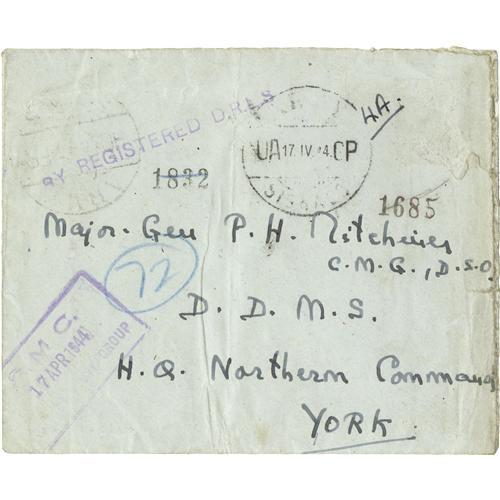 BY REGISTERED D.R.L.S
UA 17 IV 44. CP
4A.
1832
1685
Major-Gen P. H. Mitchiner
C.M.G., D.S.O.
72
D. D. M. S.
M C.
17 APR 1944
GROUP
H.Q. Northern Command
YORK.